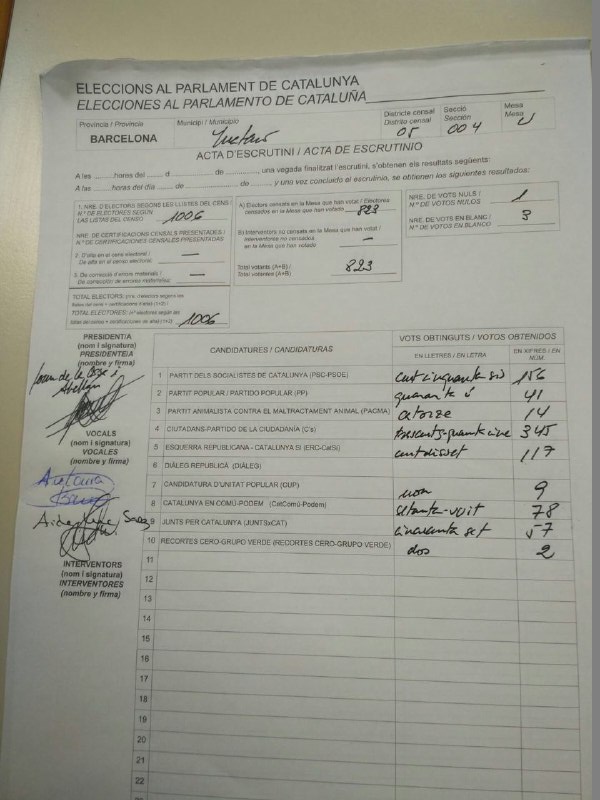 ELECCIONS AL PARLAMENT DE CATALUNYA
ELECCIONES AL PARLAMENTO DE CATALUÑA
Província / Provincia
BARCELONA
Municipi / Municipio
Districte censal
Distrito censal
05
Secció
Sección
004
Mesa
Mesa
U
ACTA D'ESCRUTINI / ACTA DE ESCRUTINIO
A les ........ hores del ........ d ........ de ........, una vegada finalitzat l'escrutini, s'obtenen els resultats següents:
A las ........ horas del día ........ de ........ de ........ y una vez concluido el escrutinio, se obtienen los siguientes resultados:
1. NRE. D'ELECTORS SEGONS LES LLISTES DEL CENS /
N.º DE ELECTORES SEGÚN
LAS LISTAS DEL CENSO
1006
NRE. DE CERTIFICACIONS CENSALS PRESENTADES /
N.º DE CERTIFICACIONES CENSALES PRESENTADAS
2. D'alta en el cens electoral /
De alta en el censo electoral
—
3. De correcció d'errors materials /
De corrección de errores materiales
—
TOTAL ELECTORS:
TOTAL ELECTORES:
1006
A) Electors censats en la Mesa que han votat / Electores
censados en la Mesa que han votado
823
B) Interventors no censats en la Mesa que han votat /
Interventores no censados
en la Mesa que han votado
—
Total votants (A+B) /
Total votantes (A+B)
823
NRE. DE VOTS NULS /
N.º DE VOTOS NULOS
1
NRE. DE VOTS EN BLANC /
N.º DE VOTOS EN BLANCO
3
PRESIDENT/A
(nom i signatura)
PRESIDENTE/A
(nombre y firma)
VOCALS
(nom i signatura)
VOCALES
(nombre y firma)
INTERVENTORS
(nom i signatura)
INTERVENTORES
(nombre y firma)
CANDIDATURES / CANDIDATURAS
VOTS OBTINGUTS / VOTOS OBTENIDOS
EN LLETRES / EN LETRA
EN XIFRES / EN NÚM.
1 PARTIT DELS SOCIALISTES DE CATALUNYA (PSC-PSOE) cent cinquanta sis 156
2 PARTIT POPULAR / PARTIDO POPULAR (PP) quaranta ú 41
3 PARTIT ANIMALISTA CONTRA EL MALTRACTAMENT ANIMAL (PACMA) catorze 14
4 CIUTADANS-PARTIDO DE LA CIUDADANÍA (C's) 345
5 ESQUERRA REPUBLICANA - CATALUNYA SÍ (ERC-CatSí) cent disset 117
6 DIÀLEG REPUBLICÀ (DIÀLEG)
7 CANDIDATURA D'UNITAT POPULAR (CUP) nou 9
8 CATALUNYA EN COMÚ-PODEM (CatComú-Podem) setanta-vuit 78
9 JUNTS PER CATALUNYA (JUNTSxCAT) cinquanta set 57
10 RECORTES CERO-GRUPO VERDE (RECORTES CERO-GRUPO VERDE) dos 2
11
12
13
14
15
16
17
18
19
20
21
22